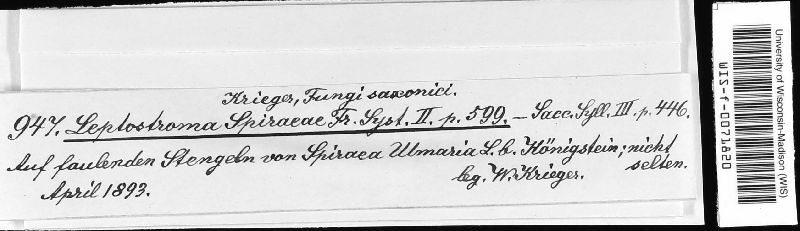 Krieger, Fungi saxonici.
947. Leptostroma Spiraeae Fr. Syst. II. p. 599. – Sacc. Syll. III. p. 446.
Auf faulenden Stengeln von Spiraea Ulmaria L. b. Königstein; nicht selten.
April 1893.
leg. W. Krieger.
University of Wisconsin-Madison (WIS)
WIS-f-0071820